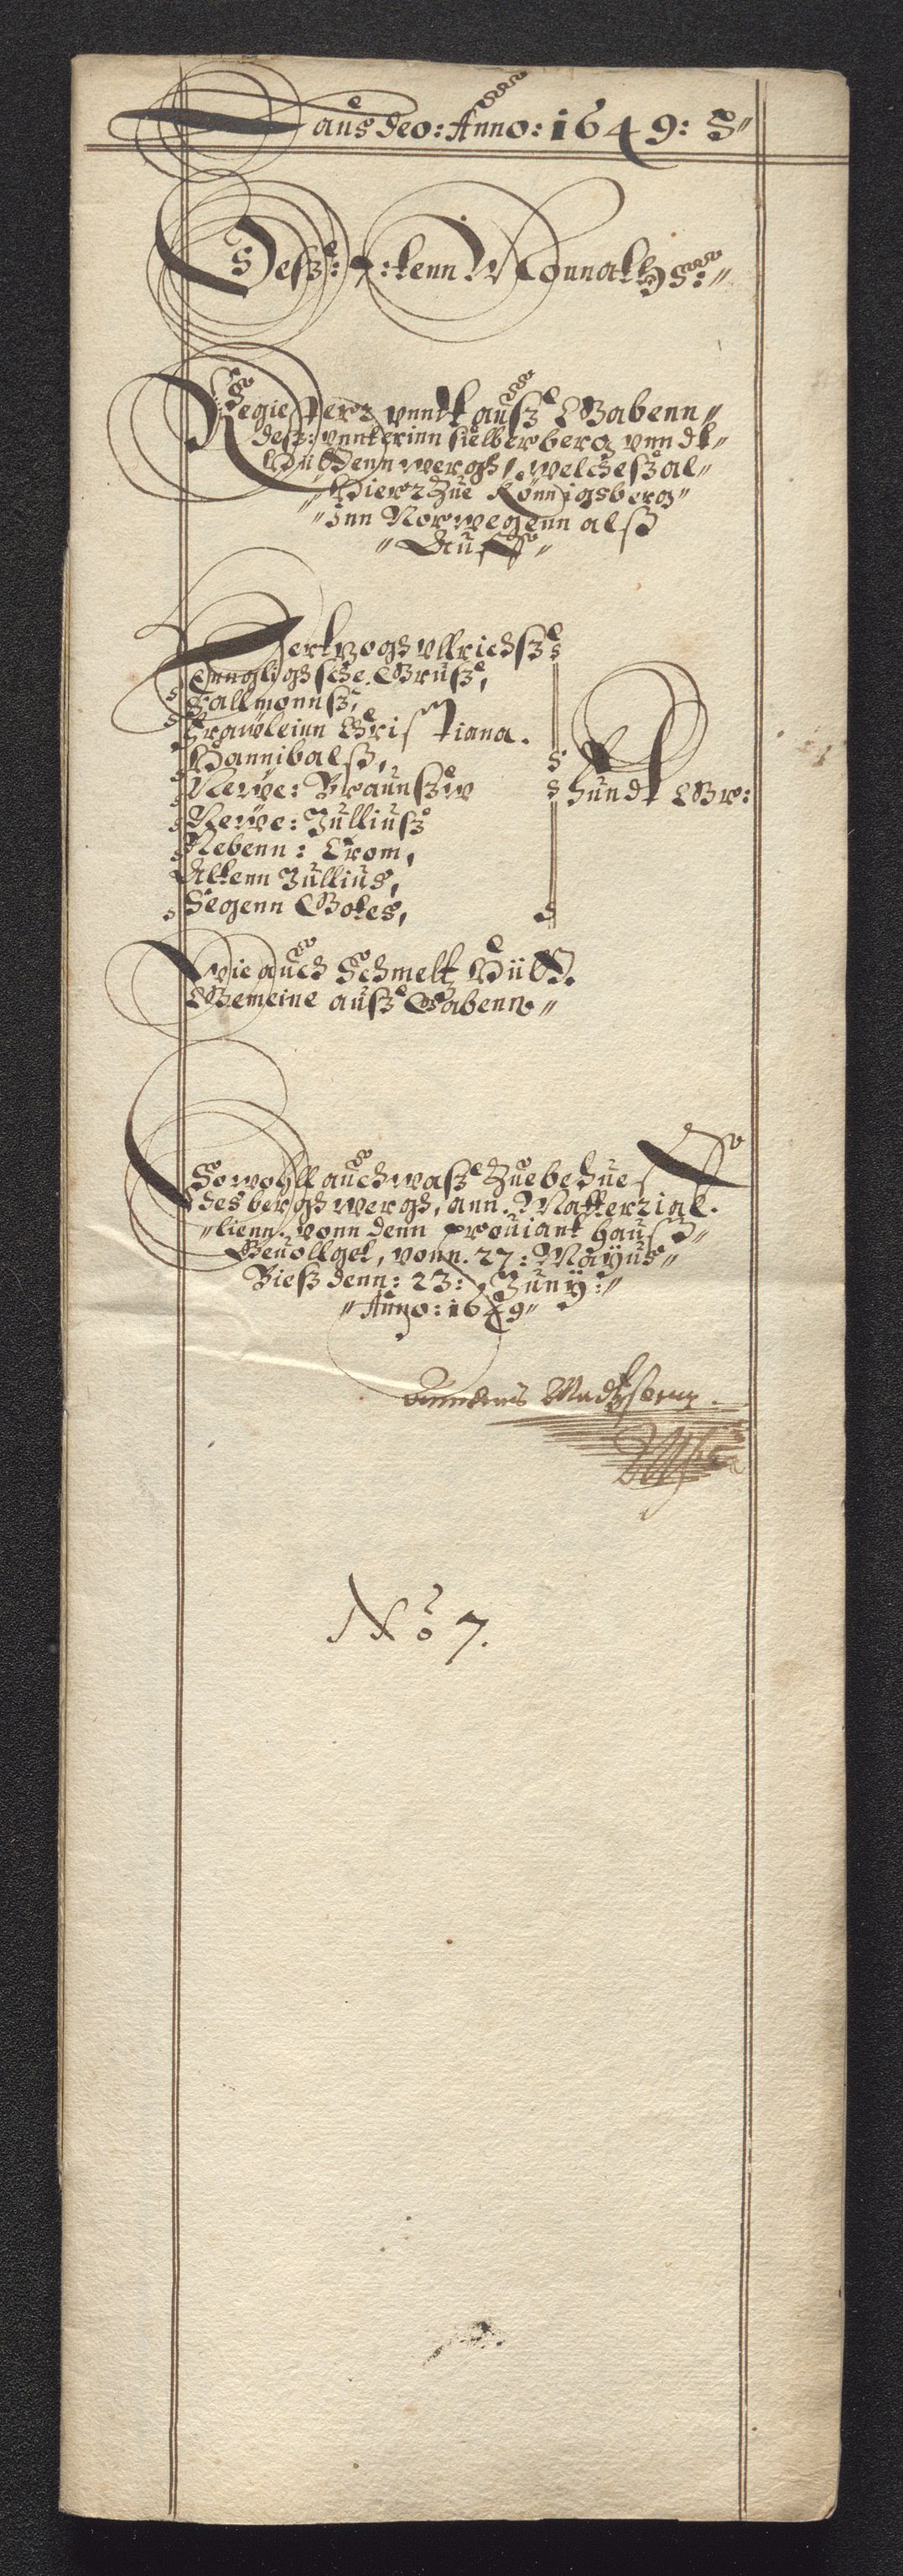 Laus deo: Anno: 1649:
Desz: 7: tenn Monnaths:
Regiesterz vnndt ausz Gabenn
desz: vnnterinn sielberberg vnndt
Hüttenn wergh, welchesz al
Hierz Zue Könnigsberg
Inn Norwegenn alsz
Auff
Hertzogh Vllrichsz
Grusz,
Fallmonnsz,
Frawleinn Cristiana.
Hannibalsz,
Newe: Braunszw
Newe: Julliusz
Nebenn: Trom,
Altenn Jullius,
Segenn Gotes,
Fundt Gr:
Wie auch Schmeltz Hütt.
Gemeine ausz Gabenn
Sowohll auch wasz Zue behue
des bergh wergh, ann. Matterzial.
lienn. vonn denn proviant hausz
Gevollget, vonn. 27: Mayus
Biesz denn: 23: Juny:
Anno: 1649
Madtzsenn
No 7.